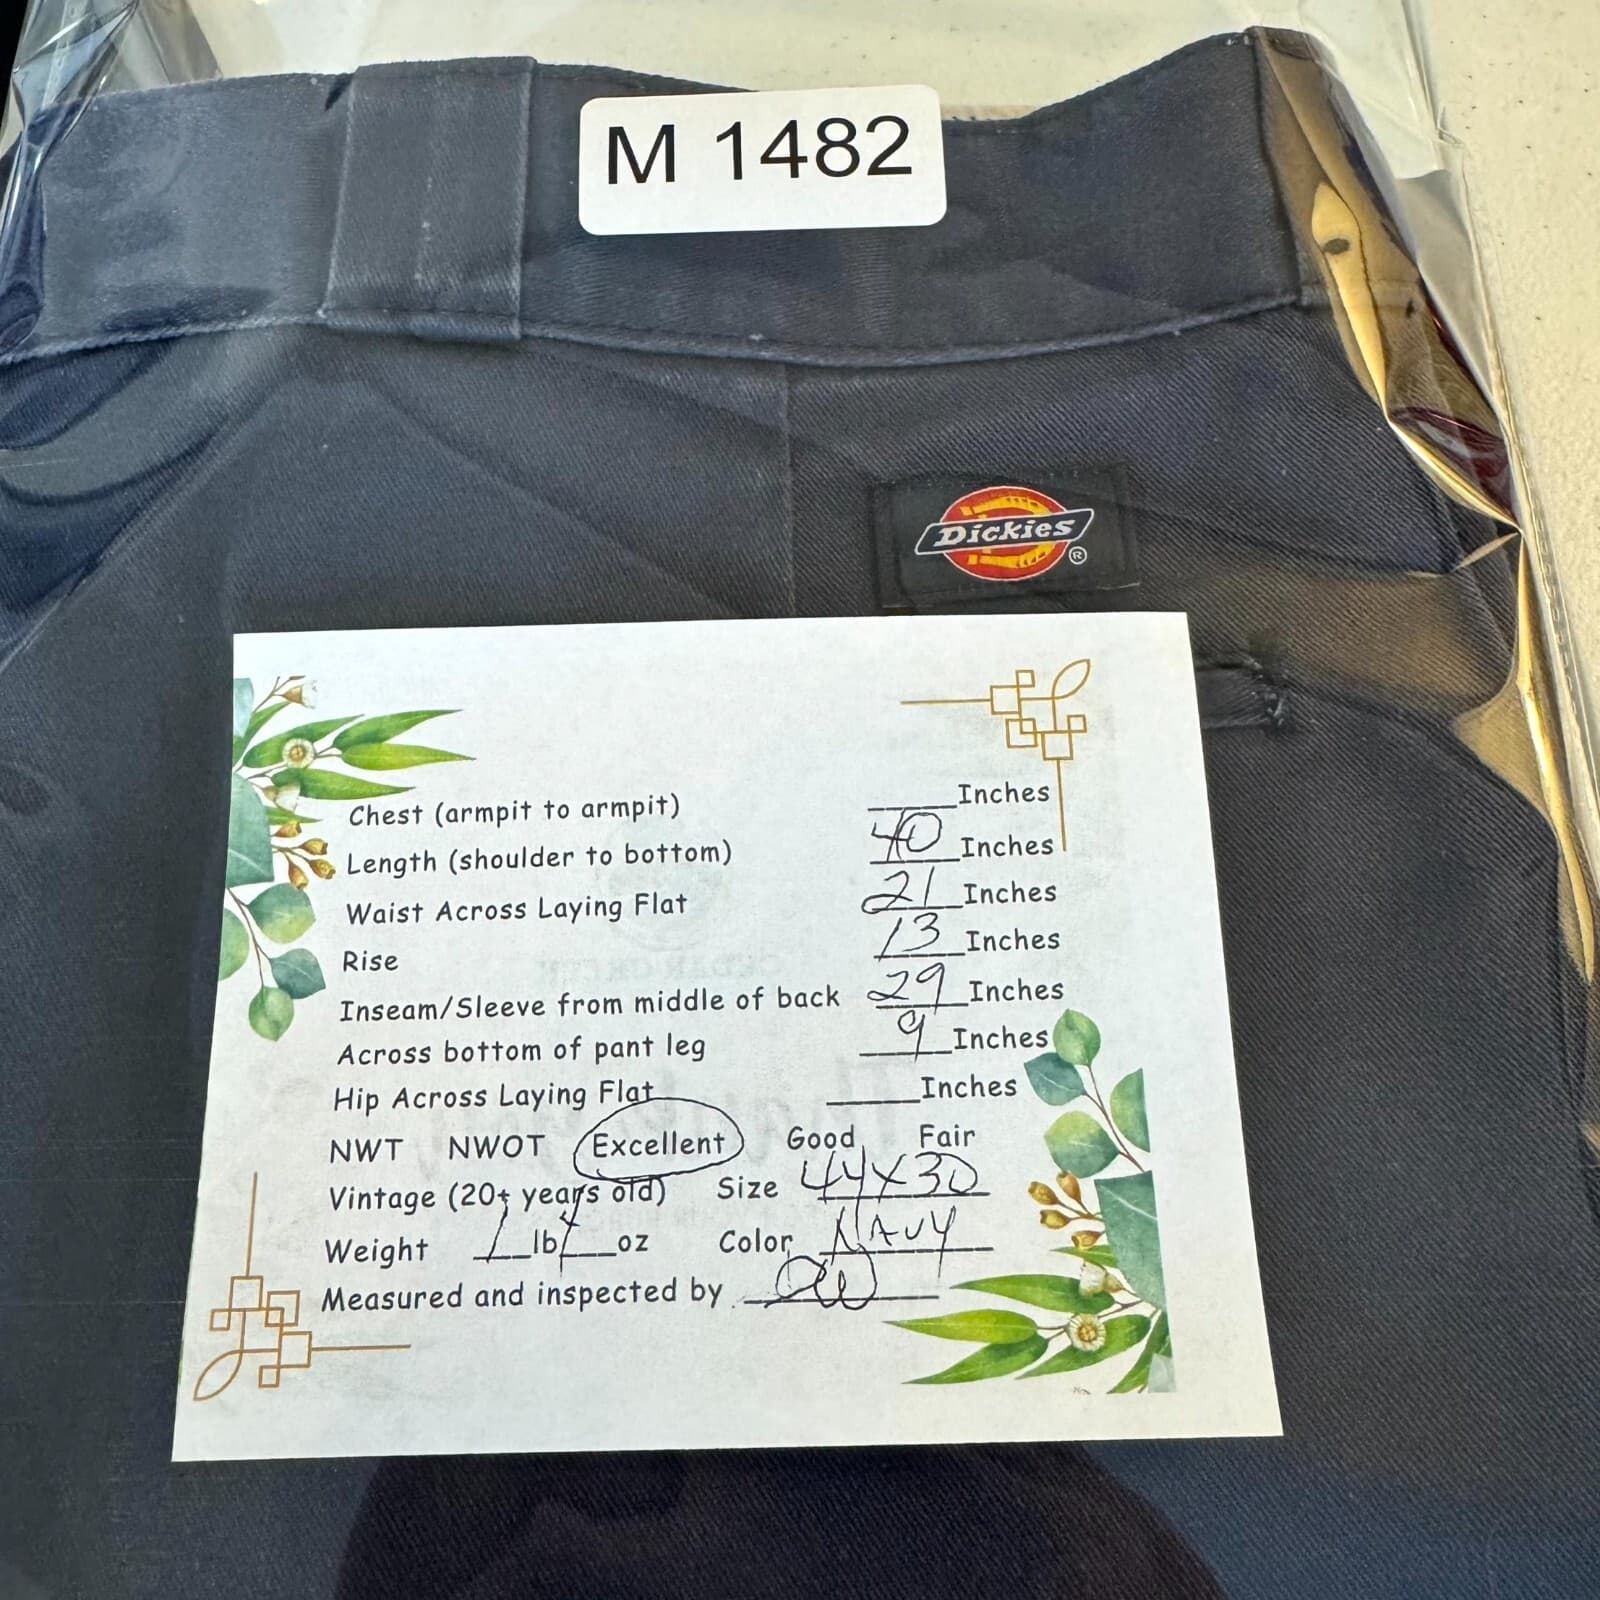 M 1482
Dickies ®
Chest (armpit to armpit) ____Inches
Length (shoulder to bottom) 40 Inches
Waist Across Laying Flat 21 Inches
Rise 13 Inches
Inseam/Sleeve from middle of back 29 Inches
Across bottom of pant leg 9 Inches
Hip Across Laying Flat ____Inches
NWT NWOT Excellent Good Fair
Vintage (20+ years old) Size 44X30
Weight 1 lb 4 oz Color NAVY
Measured and inspected by